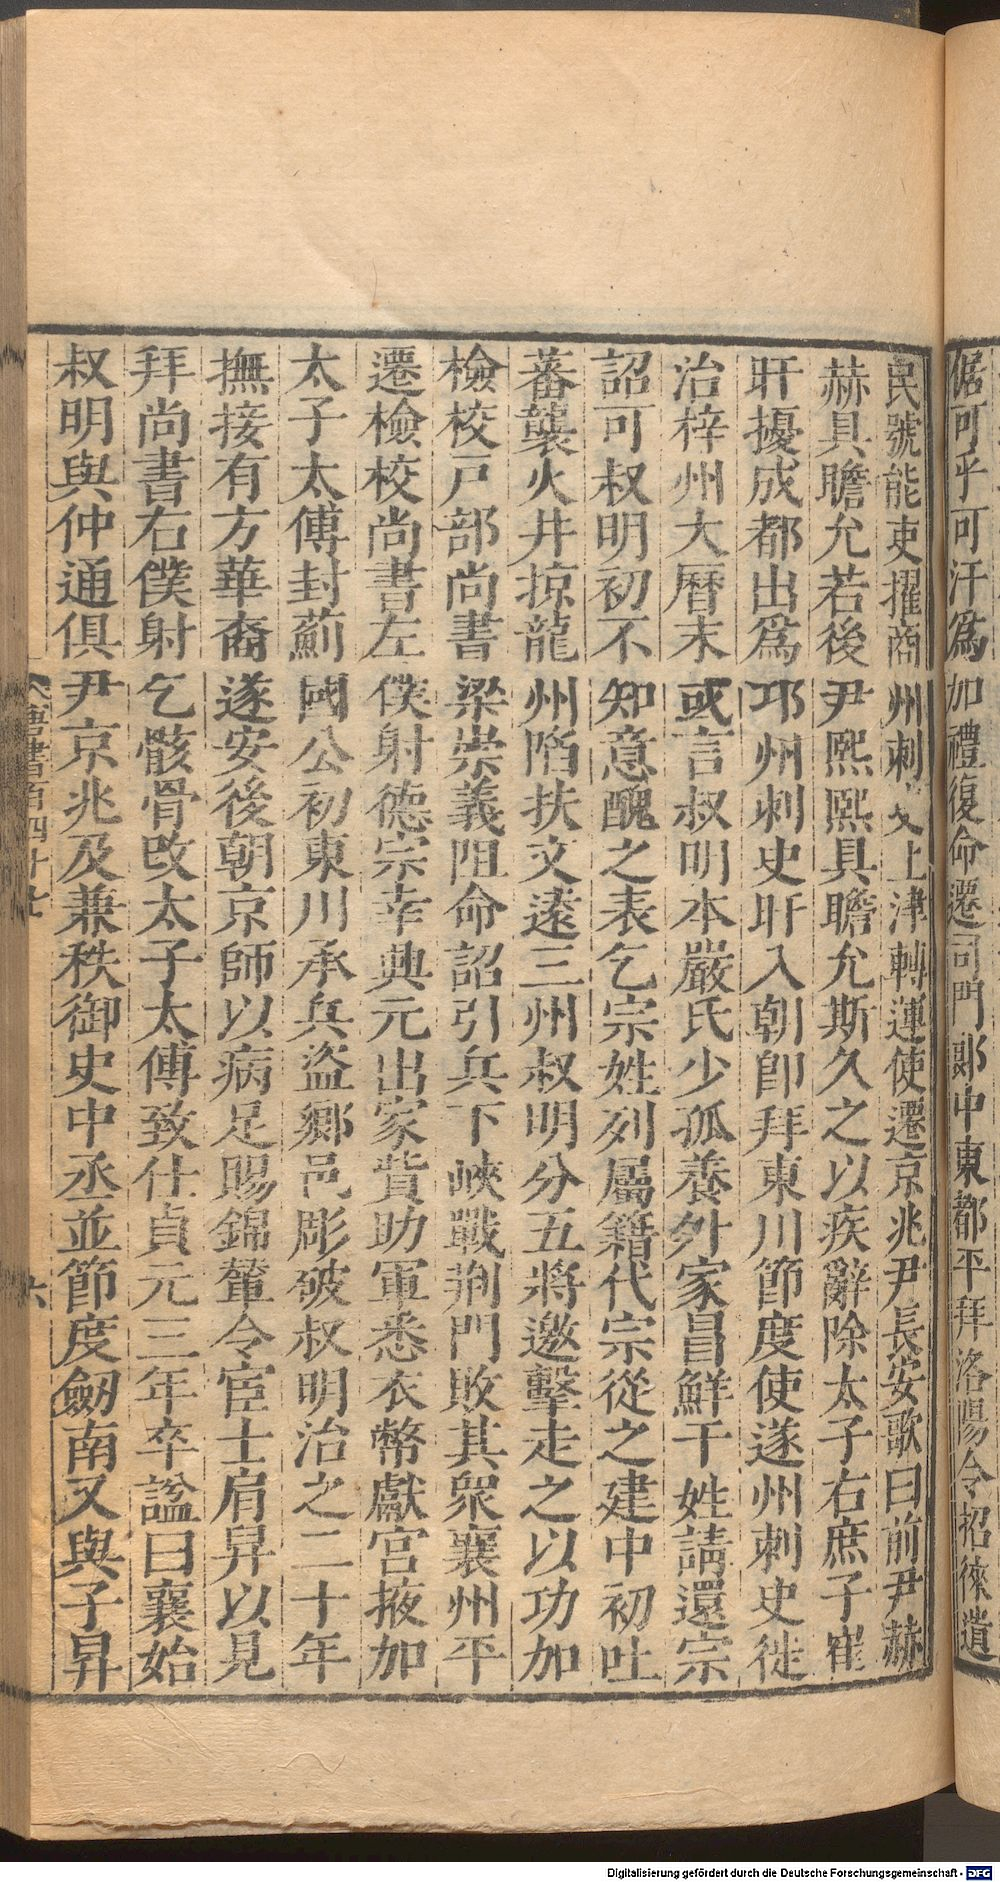 倨可乎可汗爲加禮復命遷司門郎中東都平拜洛陽令招徠遺
民號能吏擢商州刺史上津轉運使遷京兆尹長安歌曰前尹赫
赫具瞻允若後尹熙熙具瞻允斯久之以疾辭除太子右庶子崔
旰擾成都出爲邛州刺史旰入朝卽拜東川節度使遂州刺史徙
治梓州大曆末或言叔明本嚴氏少孤養外家冒鮮于姓請還宗
詔可叔明初不知意醜之表乞宗姓列屬籍代宗從之建中初吐
蕃襲火井掠龍州陷扶文遠三州叔明分五將邀擊走之以功加
檢校戸部尚書梁崇義阻命詔引兵下峽戰荆門敗其衆襄州平
遷檢校尚書左僕射德宗幸興元出家貲助軍悉衣幣獻宮掖加
太子太傅封薊國公初東川承兵盜鄉邑彫破叔明治之二十年
撫接有方華裔遂安後朝京師以病足賜錦輦令宦士肩舁以見
拜尚書右僕射乞骸骨改太子太傅致仕貞元三年卒謚曰襄始
叔明與仲通俱尹京兆及兼秩御史中丞並節度劒南又與子昇
唐書百四十七
六
Digitalisierung gefördert durch die Deutsche Forschungsgemeinschaft - DFG